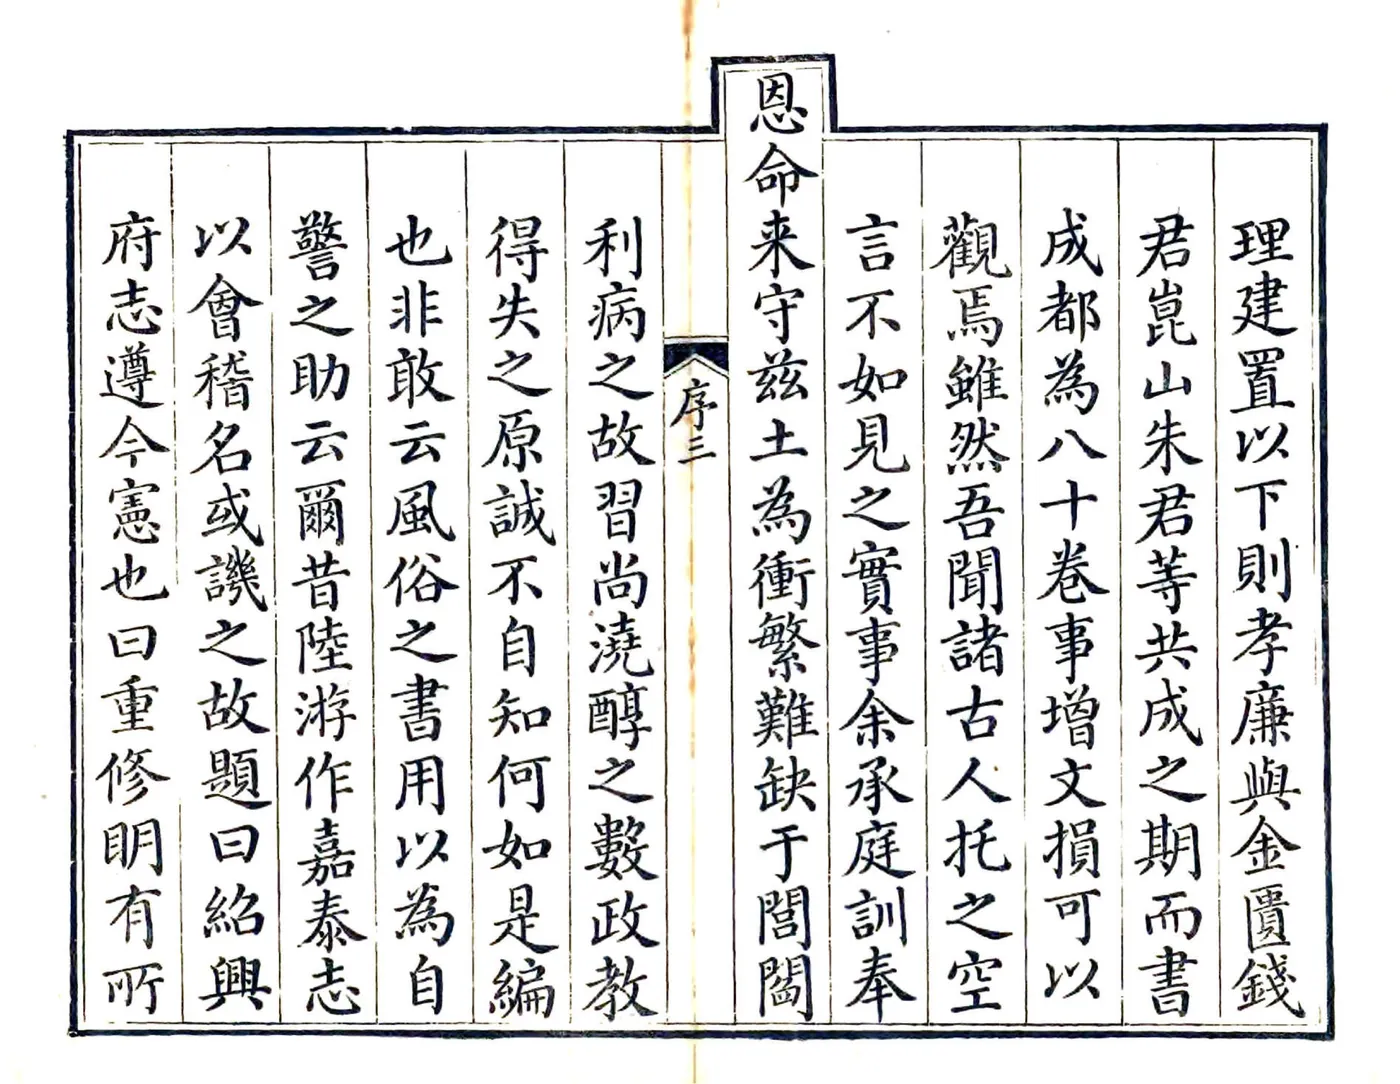 理建置以下則孝廉與金匱錢
君崑山朱君等共成之期而書
成都為八十卷事增文損可以
觀焉雖然吾聞諸古人托之空
言不如見之實事余承庭訓奉
恩命来守兹土為衝繁難缺于閭閻
序三
利病之故習尚澆醇之數政教
得失之原誠不自知何如是編
也非敢云風俗之書用以為自
警之助云爾昔陸游作嘉泰志
以會稽名或譏之故題曰紹興
府志遵今憲也曰重修眀有所